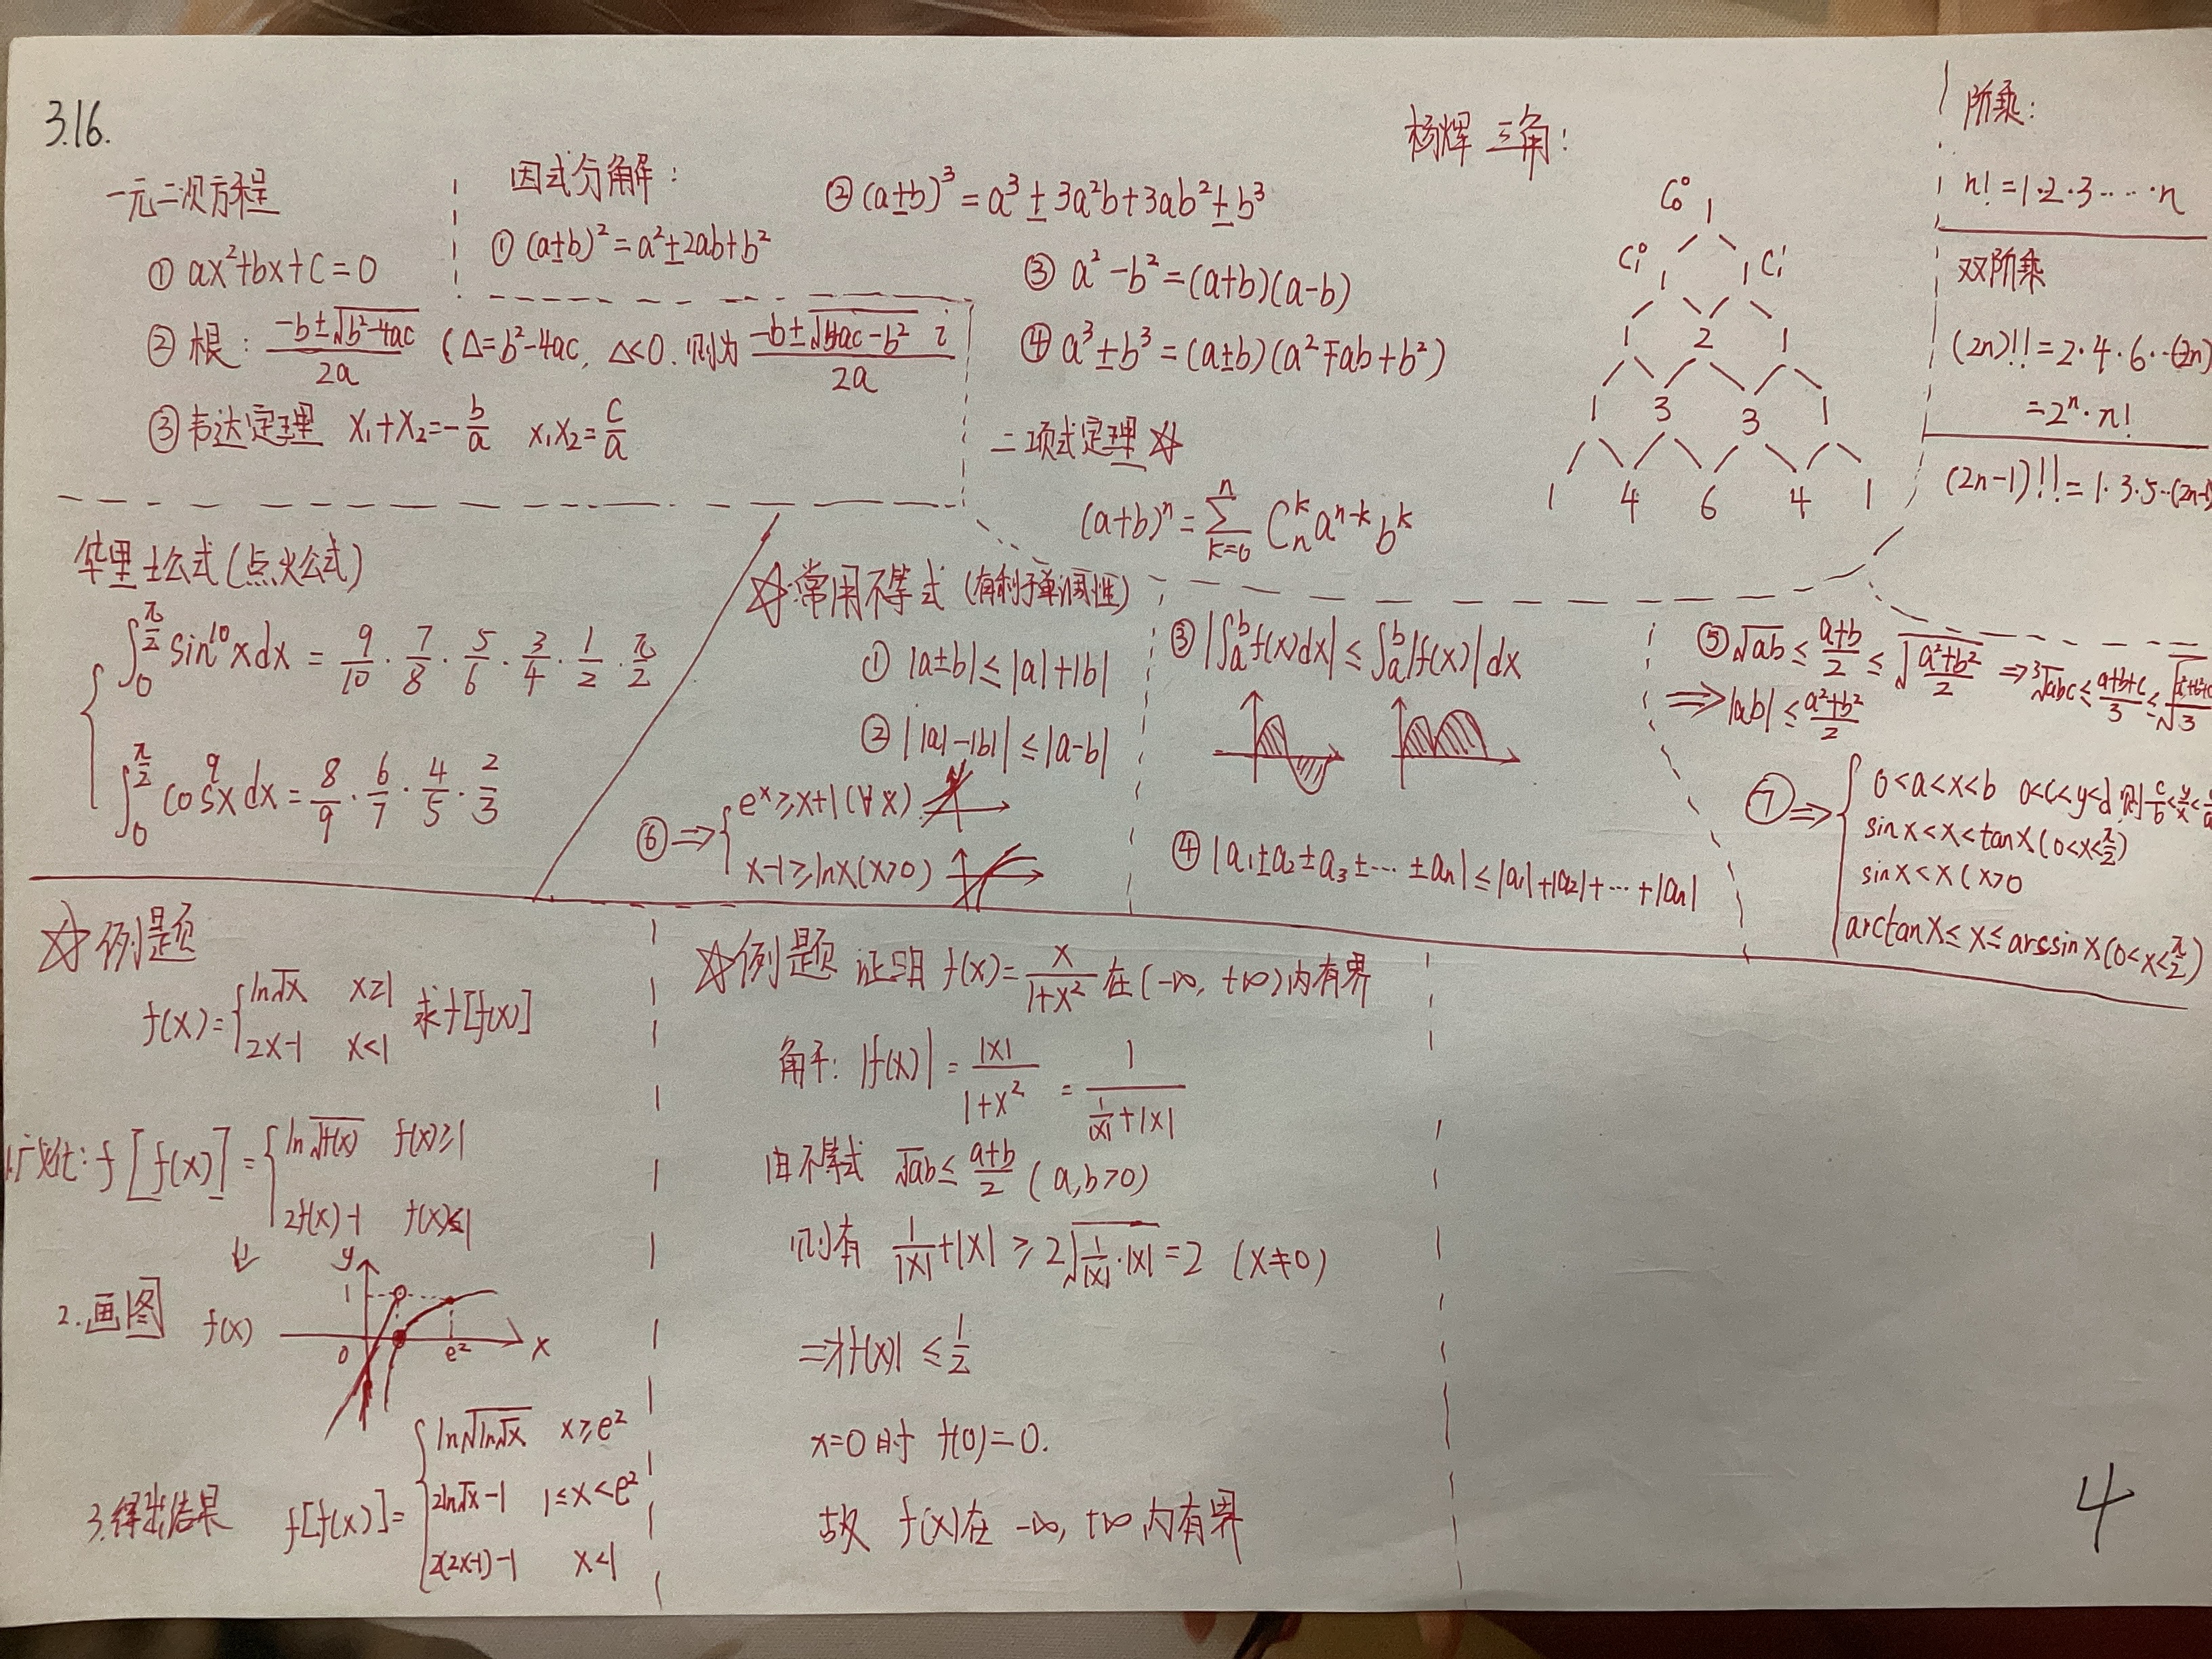 3.16.
一元二次方程
① ax²+bx+c=0
② 根: (-b±√(b²-4ac))/2a (Δ=b²-4ac, Δ<0. 则为 (-b±√(4ac-b²) i)/2a
③ 韦达定理 x₁+x₂=-b/a x₁x₂=c/a
因式分解:
① (a±b)²=a²±2ab+b²
② (a±b)³=a³±3a²b+3ab²±b³
③ a²-b²=(a+b)(a-b)
④ a³±b³=(a±b)(a²∓ab+b²)
二项式定理 ☆
(a+b)ⁿ=∑_{k=0}^{n} C_n^k a^{n-k} b^k
杨辉三角:
C₀⁰ 1
C₁⁰ 1 1 C₁¹
1 2 1
1 3 3 1
1 4 6 4 1
阶乘:
n!=1·2·3·····n
双阶乘
(2n)!!=2·4·6··(2n)
=2ⁿ·n!
(2n-1)!!=1·3·5··(2n-1)
华里士公式(点火公式)
∫₀^{π/2} sin¹⁰xdx = 9/10 · 7/8 · 5/6 · 3/4 · 1/2 · π/2
∫₀^{π/2} cos⁹xdx = 8/9 · 6/7 · 4/5 · 2/3
☆常用不等式(有利于单调性)
① |a±b|≤|a|+|b|
② ||a|-|b||≤|a-b|
③ |∫ₐᵇf(x)dx|≤∫ₐᵇ|f(x)|dx
④ |a₁±a₂±a₃±···±aₙ|≤|a₁|+|a₂|+···+|aₙ|
⑤ √ab ≤ (a+b)/2 ≤ √((a²+b²)/2) ⇒ ³√abc ≤ (a+b+c)/3 ≤
⇒ |ab|≤(a²+b²)/2
⑥ ⇒ { eˣ≥x+1(∀x)
x-1≥lnx(x>0)
⑦ ⇒ { 0<a<x<b 0<c<y<d 则 c/b<y/x<
sinx<x<tanx(0<x<π/2)
sinx<x(x>0
arctanx≤x≤arcsinx(0<x<π/2)
☆例题
f(x)={ ln√x x≥1
2x-1 x<1 求f[f(x)]
1.广义化: f[f(x)]={ ln√f(x) f(x)≥1
2f(x)-1 f(x)<1
2.画图 f(x) y 1 0 e² x
3.得出结果 f[f(x)]={ ln√(ln√x) x≥e²
2ln√x-1 1≤x<e²
2(2x-1)-1 x<1
☆例题 证明 f(x)=x/(1+x²) 在(-∞, +∞)内有界
解: |f(x)|=|x|/(1+x²) = 1/(1/|x|+|x|)
由不等式 √ab≤(a+b)/2 (a,b>0)
则有 1/|x|+|x| ≥ 2√(1/|x|·|x|)=2 (x≠0)
⇒|f(x)| ≤1/2
x=0时 f(0)=0.
故 f(x)在 -∞, +∞内有界
4